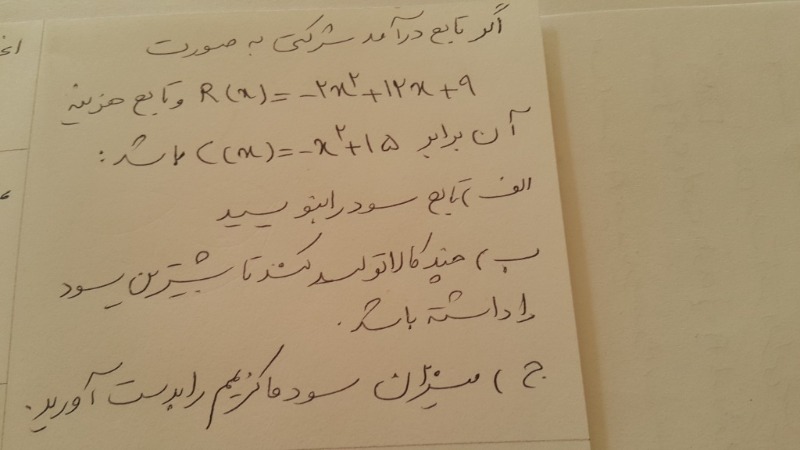 اگر تابع درآمد شرکتی به صورت
R(x)=-۲x²+۱۲x+۹ و تابع هزینه
آن برابر C(x)=-x²+۱۵ باشد:
الف) تابع سود را بنویسید
ب) چند کالا تولید کند تا بیشترین سود
را داشته باشد.
ج) میزان سود ماکزیمم را بدست آورید.